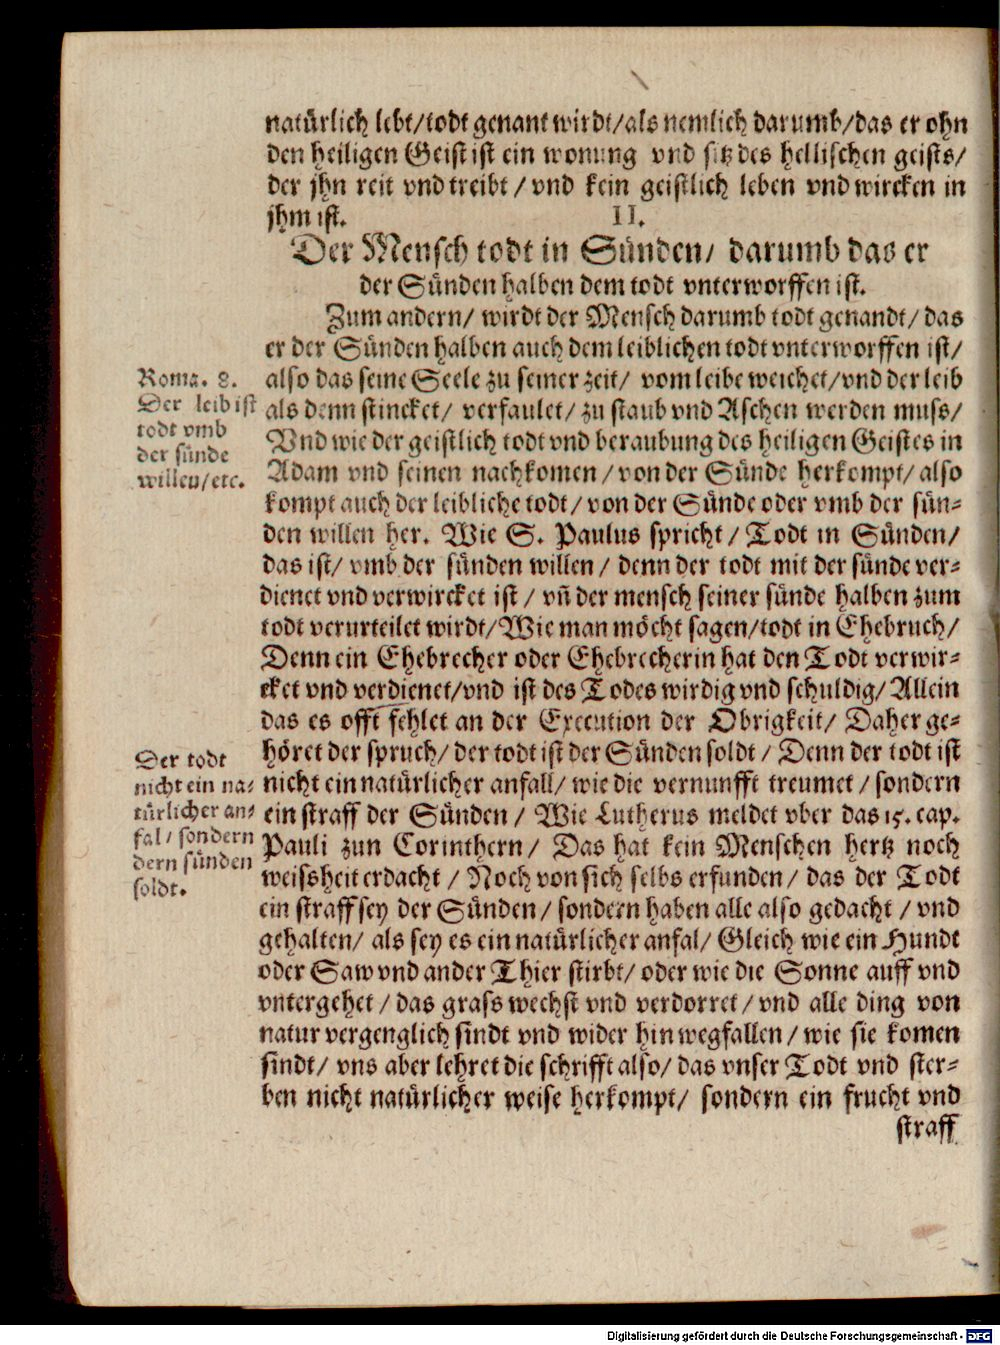 natürlich lebt/todt genant wirdt/als nemlich darumb/das er ohn
den heiligen Geist ist ein wonung vnd sitz des hellischen geists/
der jhn reit vnd treibt / vnd kein geistlich leben vnd wircken in
jhm ist.
II.
Der Mensch todt in Sünden/ darumb das er
der Sünden halben dem todt vnterworffen ist.
Zum andern/ wirdt der Mensch darumb todt genandt/ das
er der Sünden halben auch dem leiblichen todt vnterworffen ist/
also das seine Seele zu seiner zeit/ vom leibe weichet/vnd der leib
als denn stincket/ verfaulet/ zu staub vnd Aschen werden muss/
Vnd wie der geistlich todt vnd beraubung des heiligen Geistes in
Adam vnd seinen nachkomen / von der Sünde herkompt/ also
kompt auch der leibliche todt/ von der Sünde oder vmb der sün-
den willen her. Wie S. Paulus spricht / Todt in Sünden/
das ist/ vmb der sünden willen / denn der todt mit der sünde ver-
dienet vnd verwircket ist / vñ der mensch seiner sünde halben zum
todt verurteilet wirdt/Wie man möcht sagen/todt in Ehebruch/
Denn ein Ehebrecher oder Ehebrecherin hat den Todt verwir-
cket vnd verdienet/vnd ist des Todes wirdig vnd schuldig/ Allein
das es offt fehlet an der Execution der Obrigkeit/ Daher ge-
höret der spruch/ der todt ist der Sünden soldt / Denn der todt ist
nicht ein natürlicher anfall/ wie die vernunfft treumet / sondern
ein straff der Sünden / Wie Lutherus meldet vber das 15. cap.
Pauli zun Corinthern / Das hat kein Menschen hertz noch
weissheit erdacht / Noch von sich selbs erfunden / das der Todt
ein straff sey der Sünden / sondern haben alle also gedacht / vnd
gehalten/ als sey es ein natürlicher anfal/ Gleich wie ein Hundt
oder Saw vnd ander Thier stirbt/ oder wie die Sonne auff vnd
vntergehet / das grass wechst vnd verdorret / vnd alle ding von
natur vergenglich sindt vnd wider hin wegfallen / wie sie komen
sindt/ vns aber lehret die schrifft also/ das vnser Todt vnd ster-
ben nicht natürlicher weise herkompt/ sondern ein frucht vnd
straff
Roma. 8.
Der leib ist
todt vmb
der sünde
willen/etc.
Der todt
nicht ein na-
türlicher an-
fal/ sondern
dern sünden
soldt.
Digitalisierung gefördert durch die Deutsche Forschungsgemeinschaft - DFG